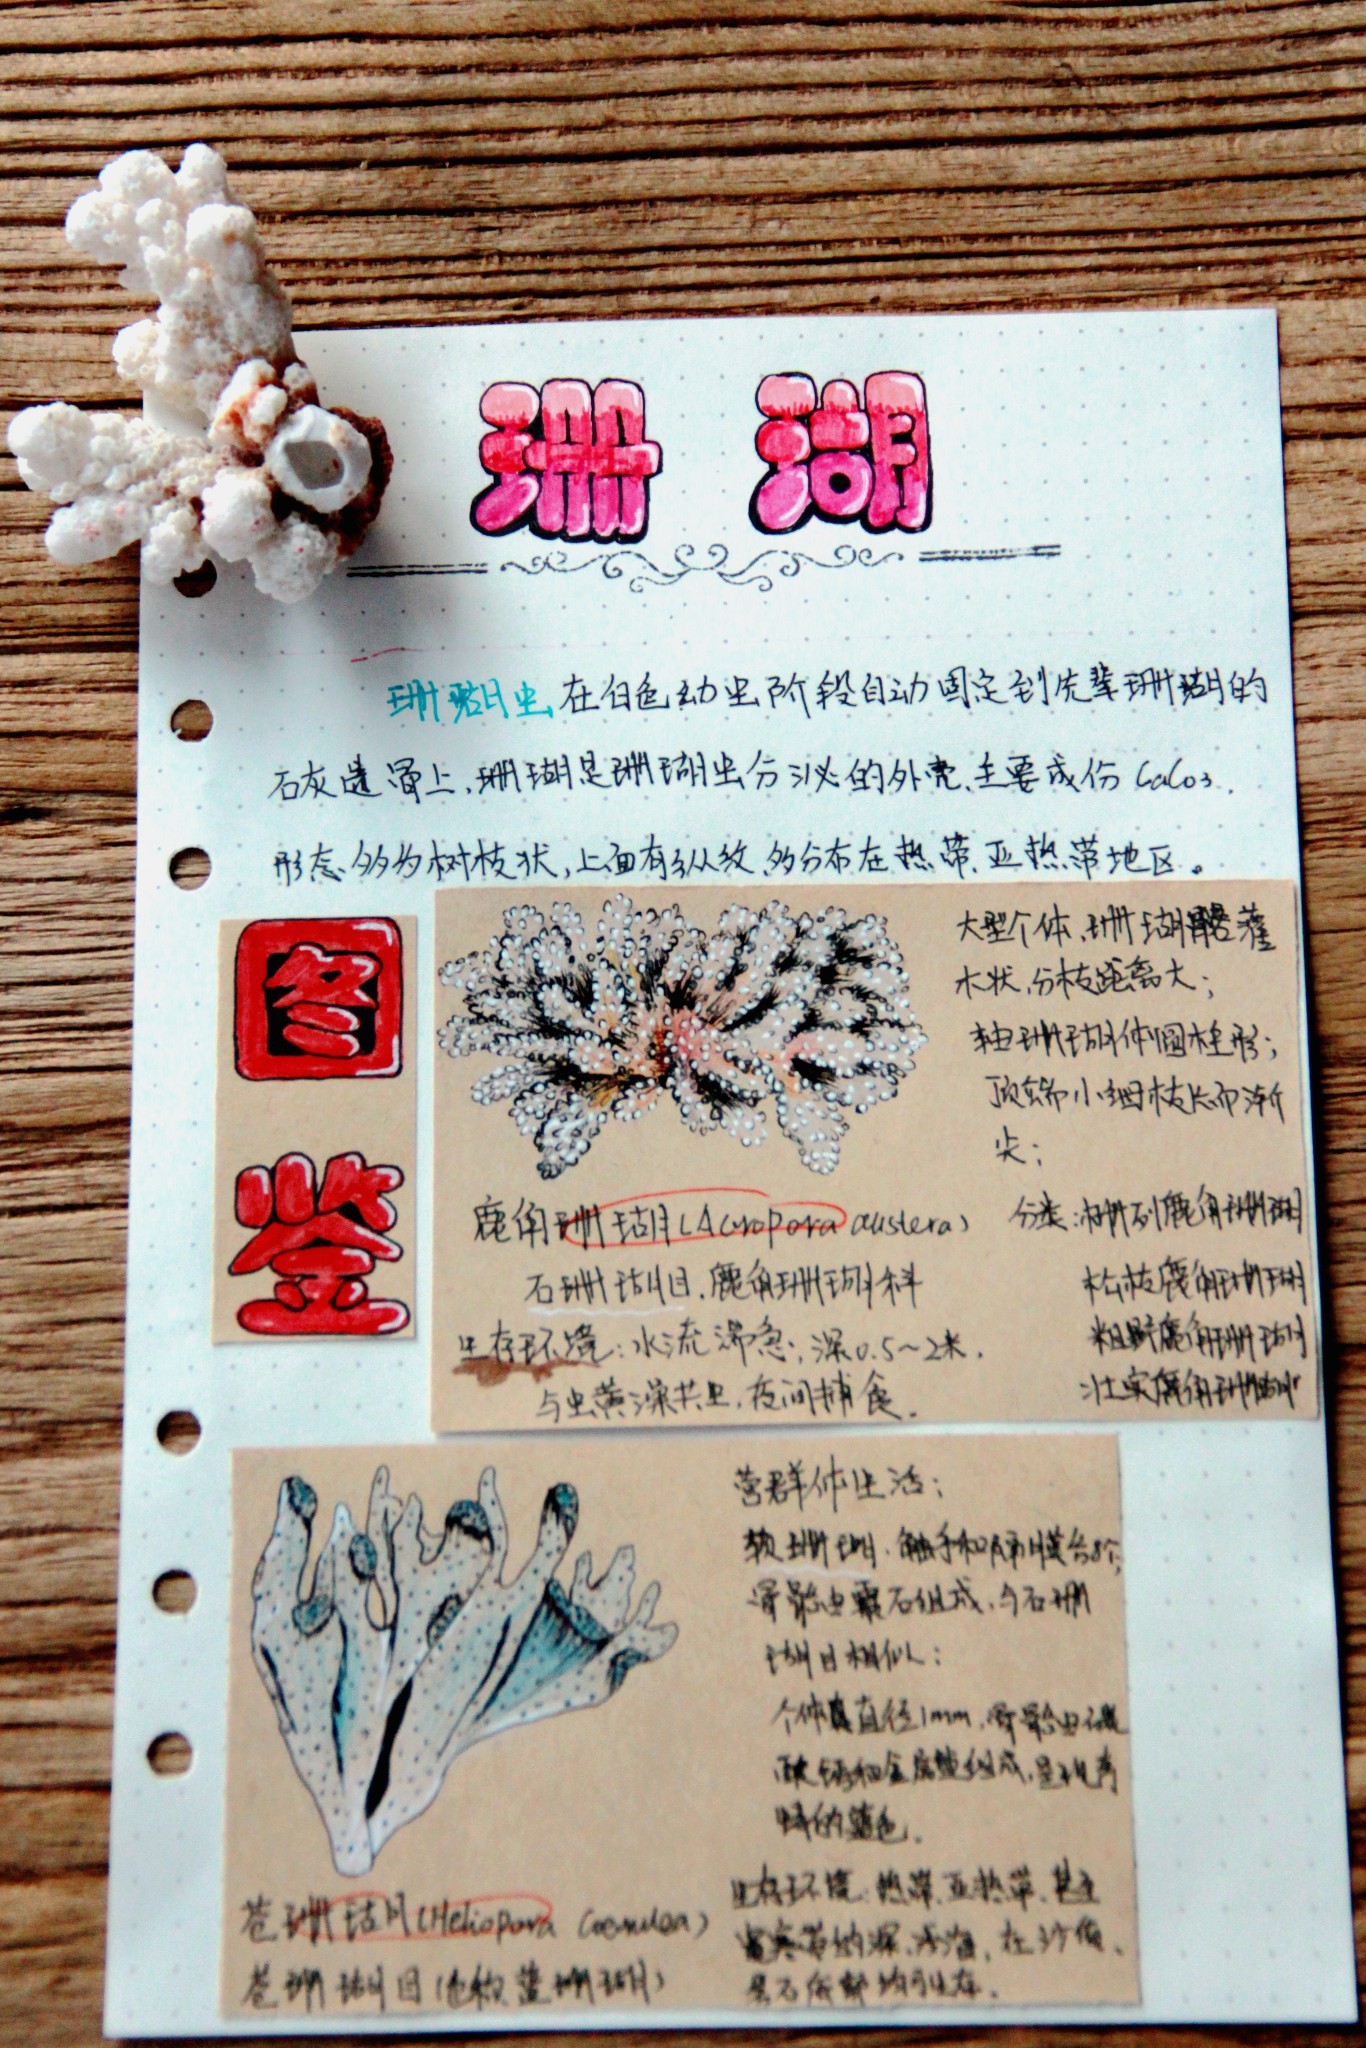 珊瑚
珊瑚虫在白色幼虫阶段自动固定到先辈珊瑚的
石灰遗骨上,珊瑚是珊瑚虫分泌的外壳、主要成份CaCO3.
形态多为树枝状,上面有纵纹、多分布在热带、亚热带地区。
图鉴
大型个体、珊瑚骼灌
木状、分枝距离大;
轴珊瑚体圆柱形;
顶端小细枝长而渐
尖;
鹿角珊瑚(Acropora austera)
石珊瑚目、鹿角珊瑚科
生存环境:水流湍急;深0.5~2米.
与虫黄藻共生、夜间捕食.
分类:
松枝鹿角珊瑚
粗野鹿角珊瑚
壮实鹿角珊瑚
营群体生活;
软珊瑚、触手和隔膜各8个,
骨骼由霰石组成、与石珊
瑚目相似;
个体直径1mm、骨骼由碳
酸钙和金属盐组成、呈现奇
特的蓝色.
苍珊瑚(Heliopora coerulea)
苍珊瑚目(也称蓝珊瑚)
生存环境:热带、亚热带、
在沙质、